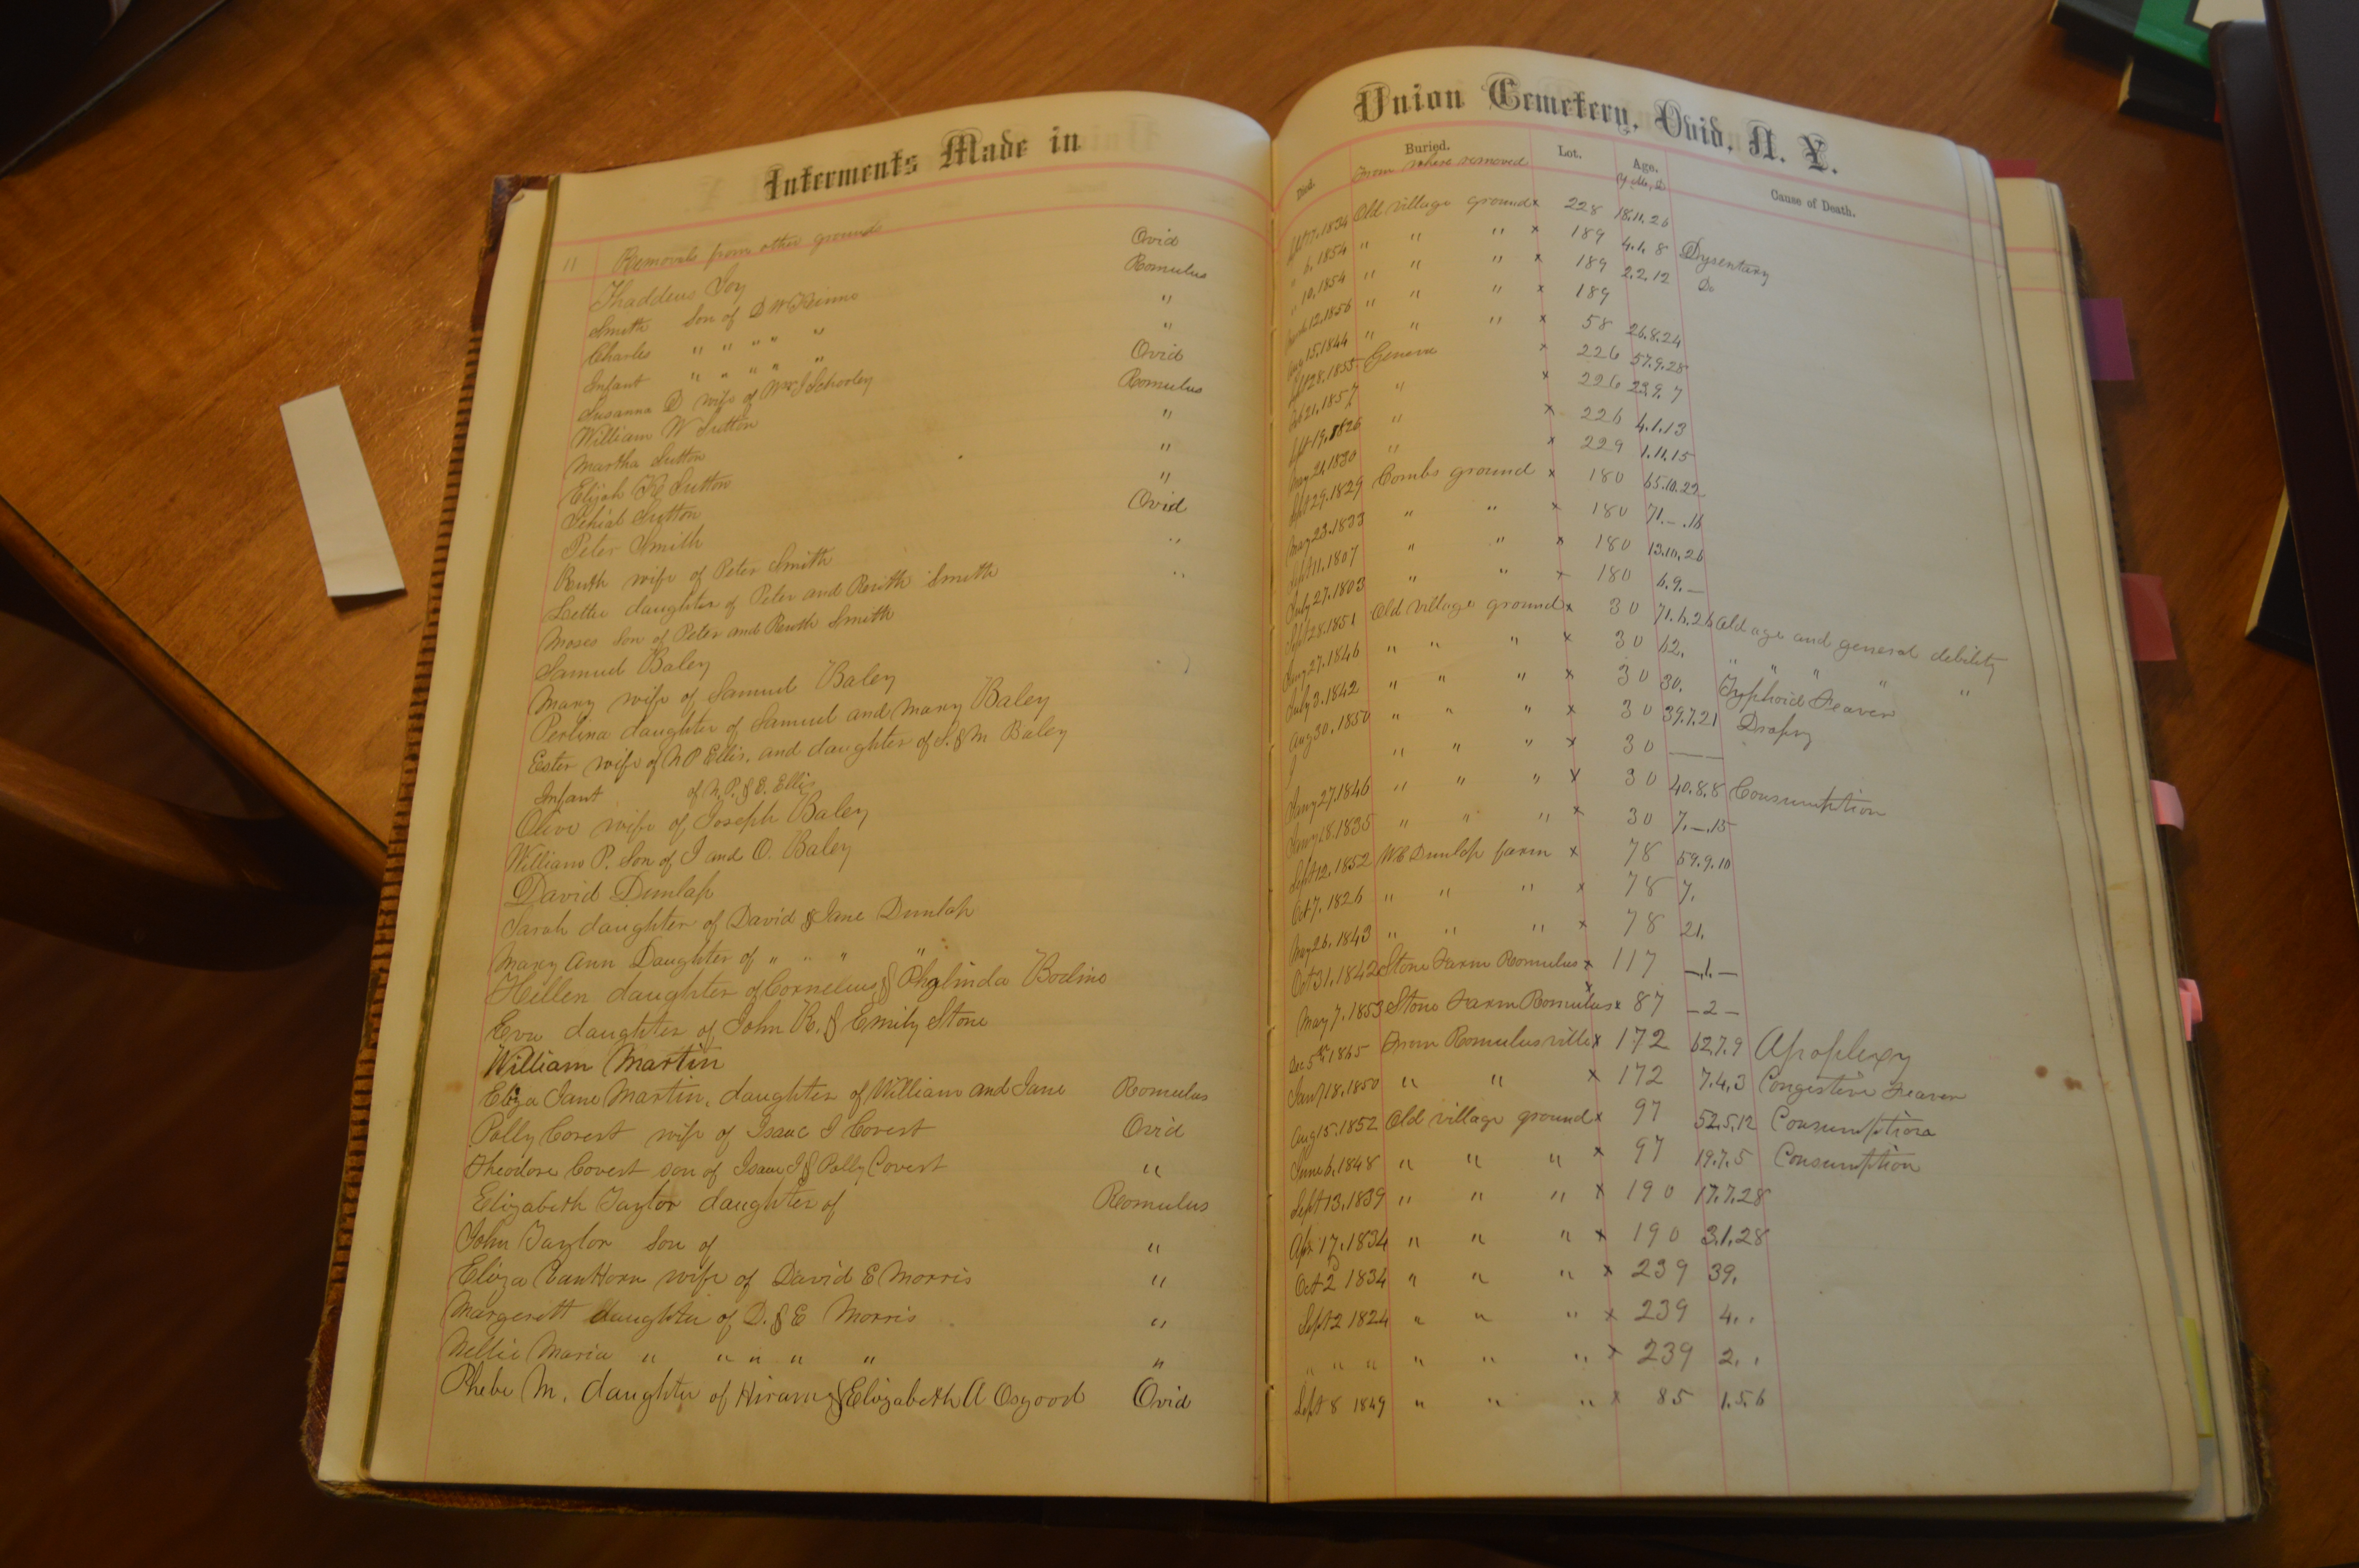 Interments Made in
11 Removals from other grounds
Thaddeus Joy Ovid
Smith Son of D W Kinne Romulus
Charles " " " " " "
Infant " " " " " "
Susanna D wife of Wm J Schooley Ovid
William W Sutton Romulus
Martha Sutton "
Elijah K Sutton "
Sutton "
Peter Smith Ovid
Ruth wife of Peter Smith "
Lettie daughter of Peter and Reuth Smith "
Moses Son of Peter and Reuth Smith
Samuel Baley
Mary wife of Samuel Baley
Perlina daughter of Samuel and Mary Baley
Ester wife of N P Ellis, and daughter of S. & M Baley
Infant of N. P. & E. Ellis
Olive wife of Joseph Baley
William P. Son of J and O. Baley
David Dunlap
Sarah daughter of David & Jane Dunlap
Mary Ann Daughter of " " " "
Hellen daughter of Cornelius & Bodine
Eva daughter of John R. & Emily Stone
William Martin
Eliza Jane Martin, daughter of William and Jane Romulus
Polly Covert wife of Isaac I Covert Ovid
Theodore Covert son of Isaac I & Polly Covert "
Elizabeth Taylor daughter of Romulus
John Taylor Son of "
Eliza VanHorn wife of David E Morris "
Margerett daughter of D. & E Morris "
Nellie Maria " " " " " "
Phebe M. daughter of Hiram & Elizabeth A Osgood Ovid
Union Cemetery, Ovid, N. Y.
Died. Buried. Lot. Age. Cause of Death.
From where removed Y. M. D
Sept 17, 1834 Old village ground x 228 18.11.26
" 6, 1854 " " " x 189 4.1.8 Dysentary
" 10, 1854 " " " x 189 2.2.12 Do
March 12, 1856 " " " x 189
Aug 15, 1844 " " " x 58 26.8.24
Sept 28, 1855 Geneva x 226 57.9.28
Oct 21, 1857 " x 226 23.9.7
Sept 19, 1826 " x 226 4.1.13
May 21, 1830 " x 229 1.11.15
Sept 29, 1829 Combs ground x 180 65.10.22
May 23, 1833 " " x 180 71.–.16
Sept 11, 1807 " " x 180 13.10.26
July 27, 1803 " " x 180 6.9.–
Sept 28, 1851 Old Village ground x 30 71.6.26 Old age and general debility
27, 1846 " " " x 30 62. " " " "
July 3, 1842 " " " x 30 30. Typhoid Feaver
Aug 30, 1850 " " " x 30 39.7.21 Dropsy
" " " x 30 —
27, 1846 " " " x 30 40.8.8 Consumption
18, 1835 " " " x 30 7.–.15
Sept 12, 1852 W C Dunlap farm x 78 59.9.10
Oct 7, 1826 " " " x 78 7.
May 26, 1843 " " " x 78 21.
Oct 31, 1842 Stone Farm Romulus x 117 –.1.–
May 7, 1853 Stone Farm Romulus x 87 – 2 –
Dec 5th, 1865 From Romulusville x 172 62.7.9 Apoplexy
Jany 18, 1850 " " x 172 7.4.3 Congestive Feaver
Aug 15, 1852 Old village ground x 97 52.5.12 Consumption
June 6, 1848 " " " x 97 19.7.5 Consumption
Sept 13, 1839 " " " x 190 17.7.28
Apr 17, 1834 " " " x 190 3.1.28
Oct 2 1834 " " " x 239 39.
Sept 2 1824 " " " x 239 4. .
" " " " " " x 239 2. .
Sept 8 1849 " " " x 85 1.5.6